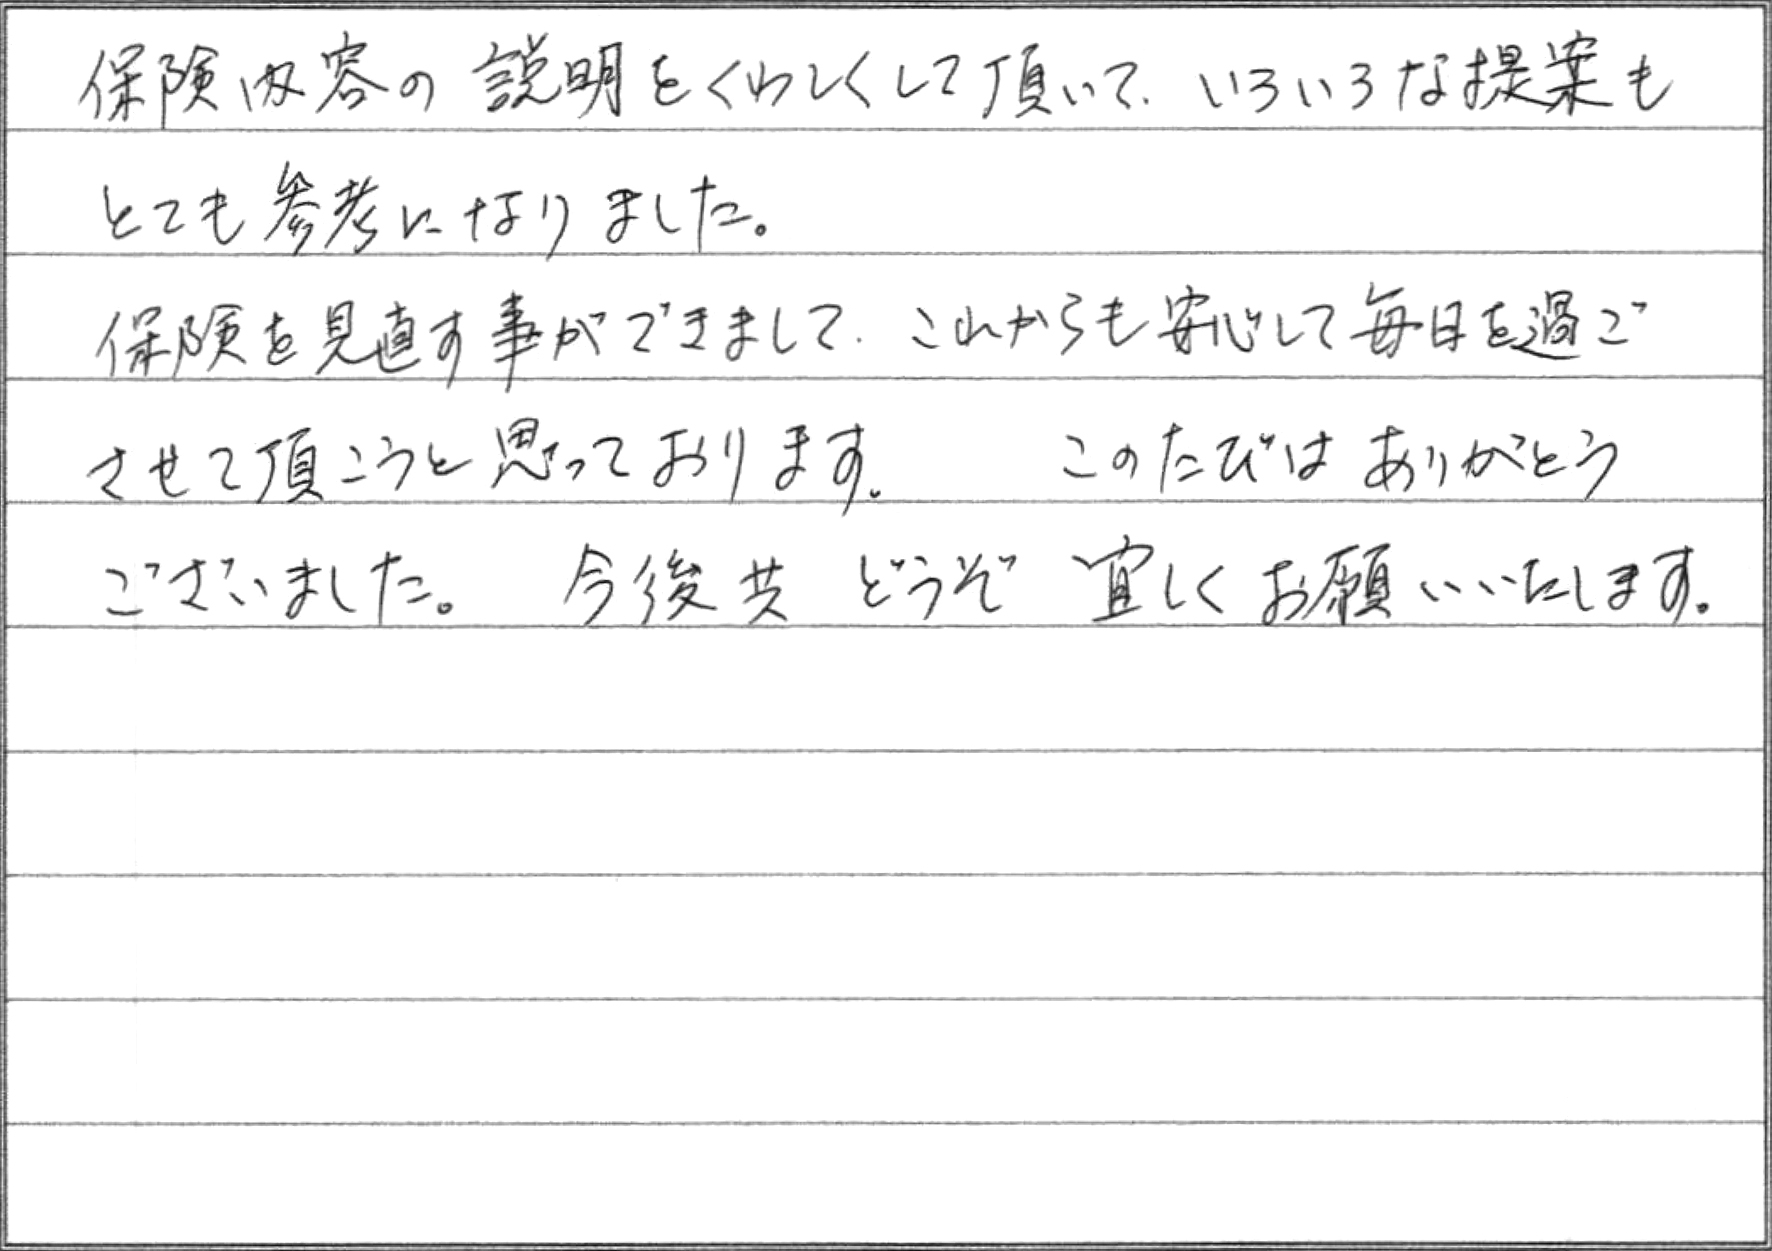 保険内容の説明をくわしくして頂いて、いろいろな提案も
とても参考になりました。
保険を見直す事ができまして、これからも安心して毎日を過ご
させて頂こうと思っております。 このたびはありがとう
ございました。 今後共 どうぞ 宜しくお願いいたします。